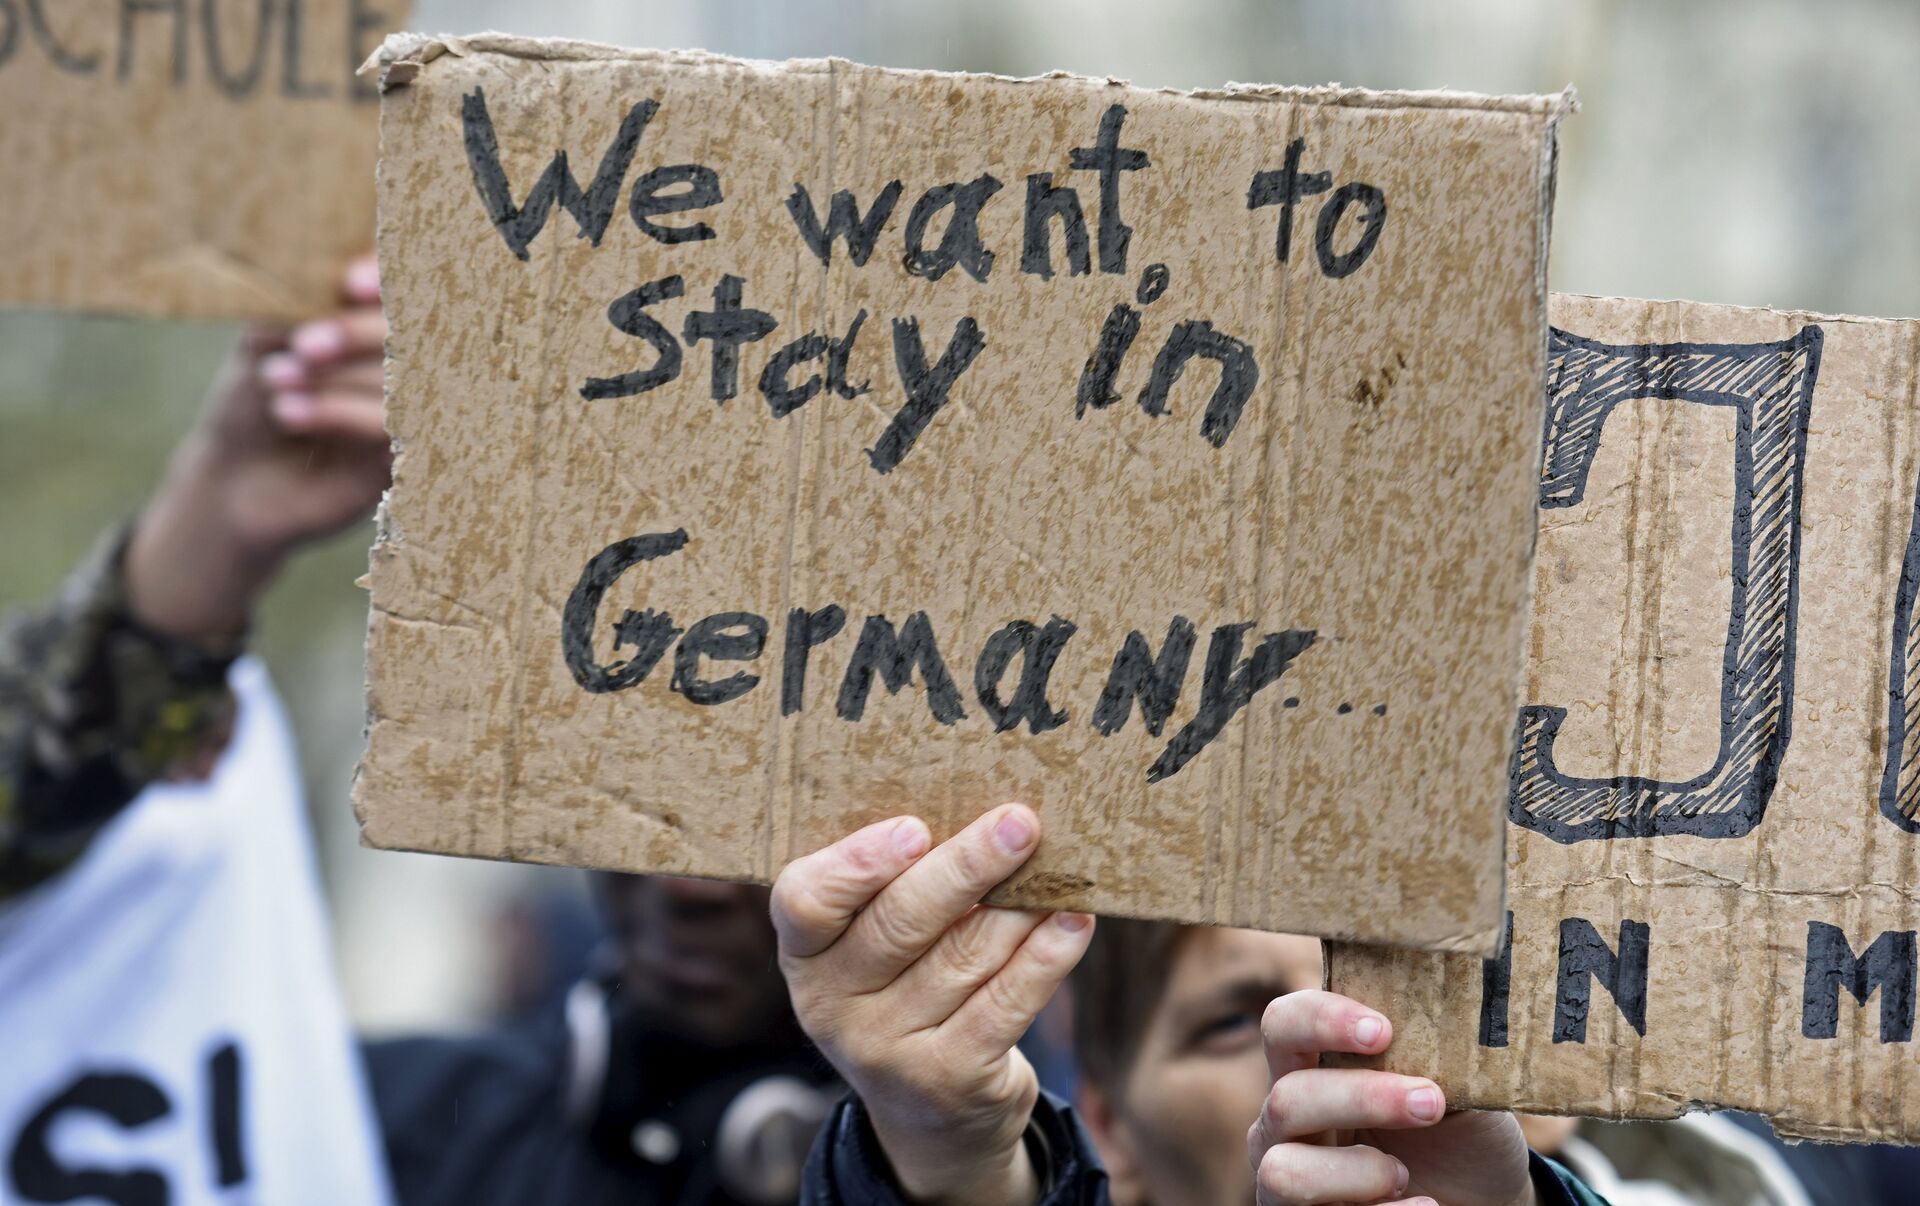 SCHULE
We want to
stay in
Germany...
IN M
S!